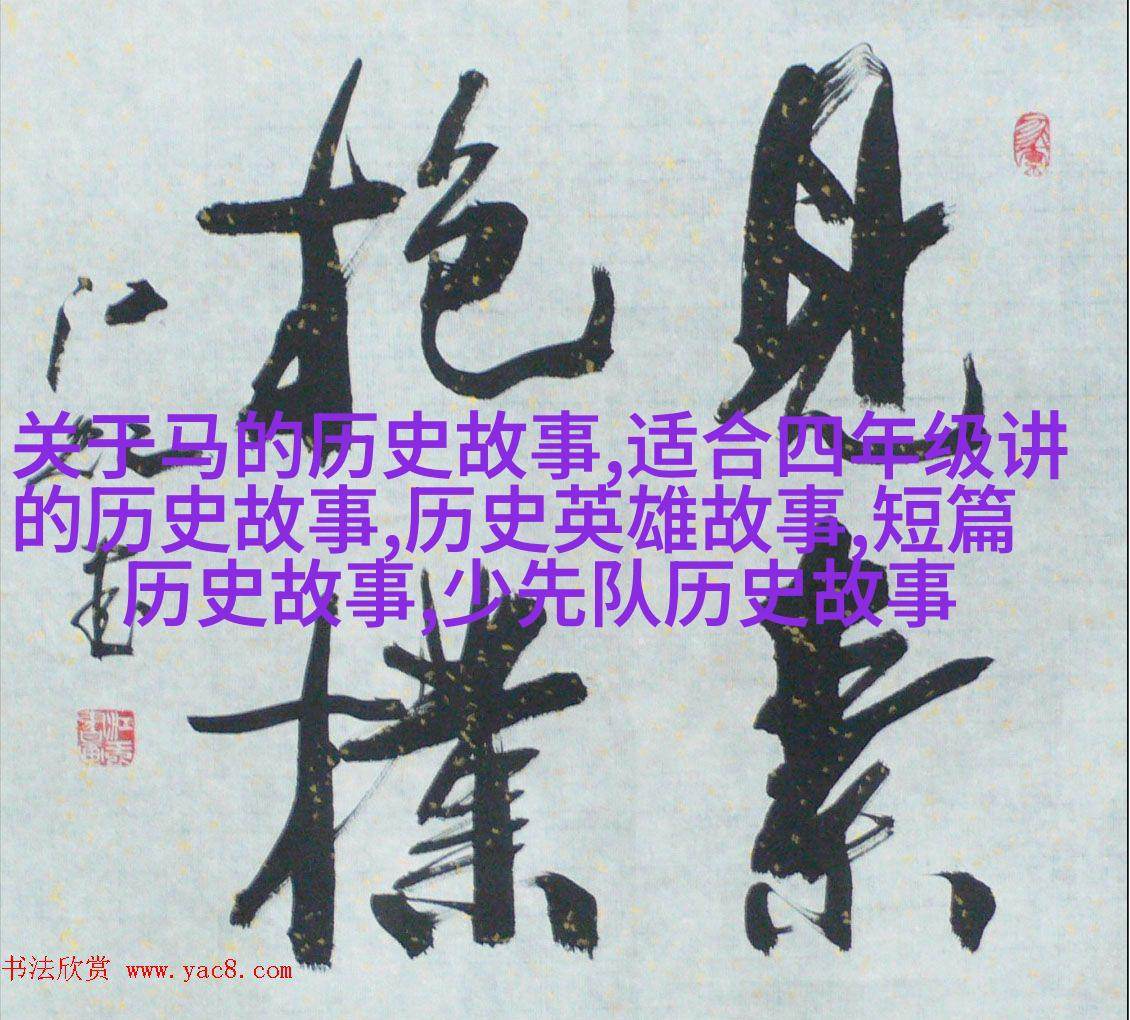 见素
抱樸
江
关于马的历史故事,适合四年级讲
的历史故事,历史英雄故事,短篇
历史故事,少先队历史故事
书法欣赏 www.yac8.com